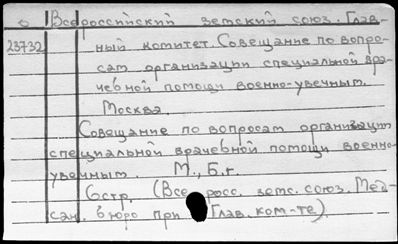 Всероссийский земский союз. Глав-
23732 ный комитет. Совещание по вопро-
сам организации специальной вра-
чебной помощи военно-увечным.
Москва.
Совещание по вопросам организации
специальной врачебной помощи военно-
увечным. М., Б.г.
6стр. (Все росс. земс. союз. Мед-
сан. бюро при Глав. ком-те).